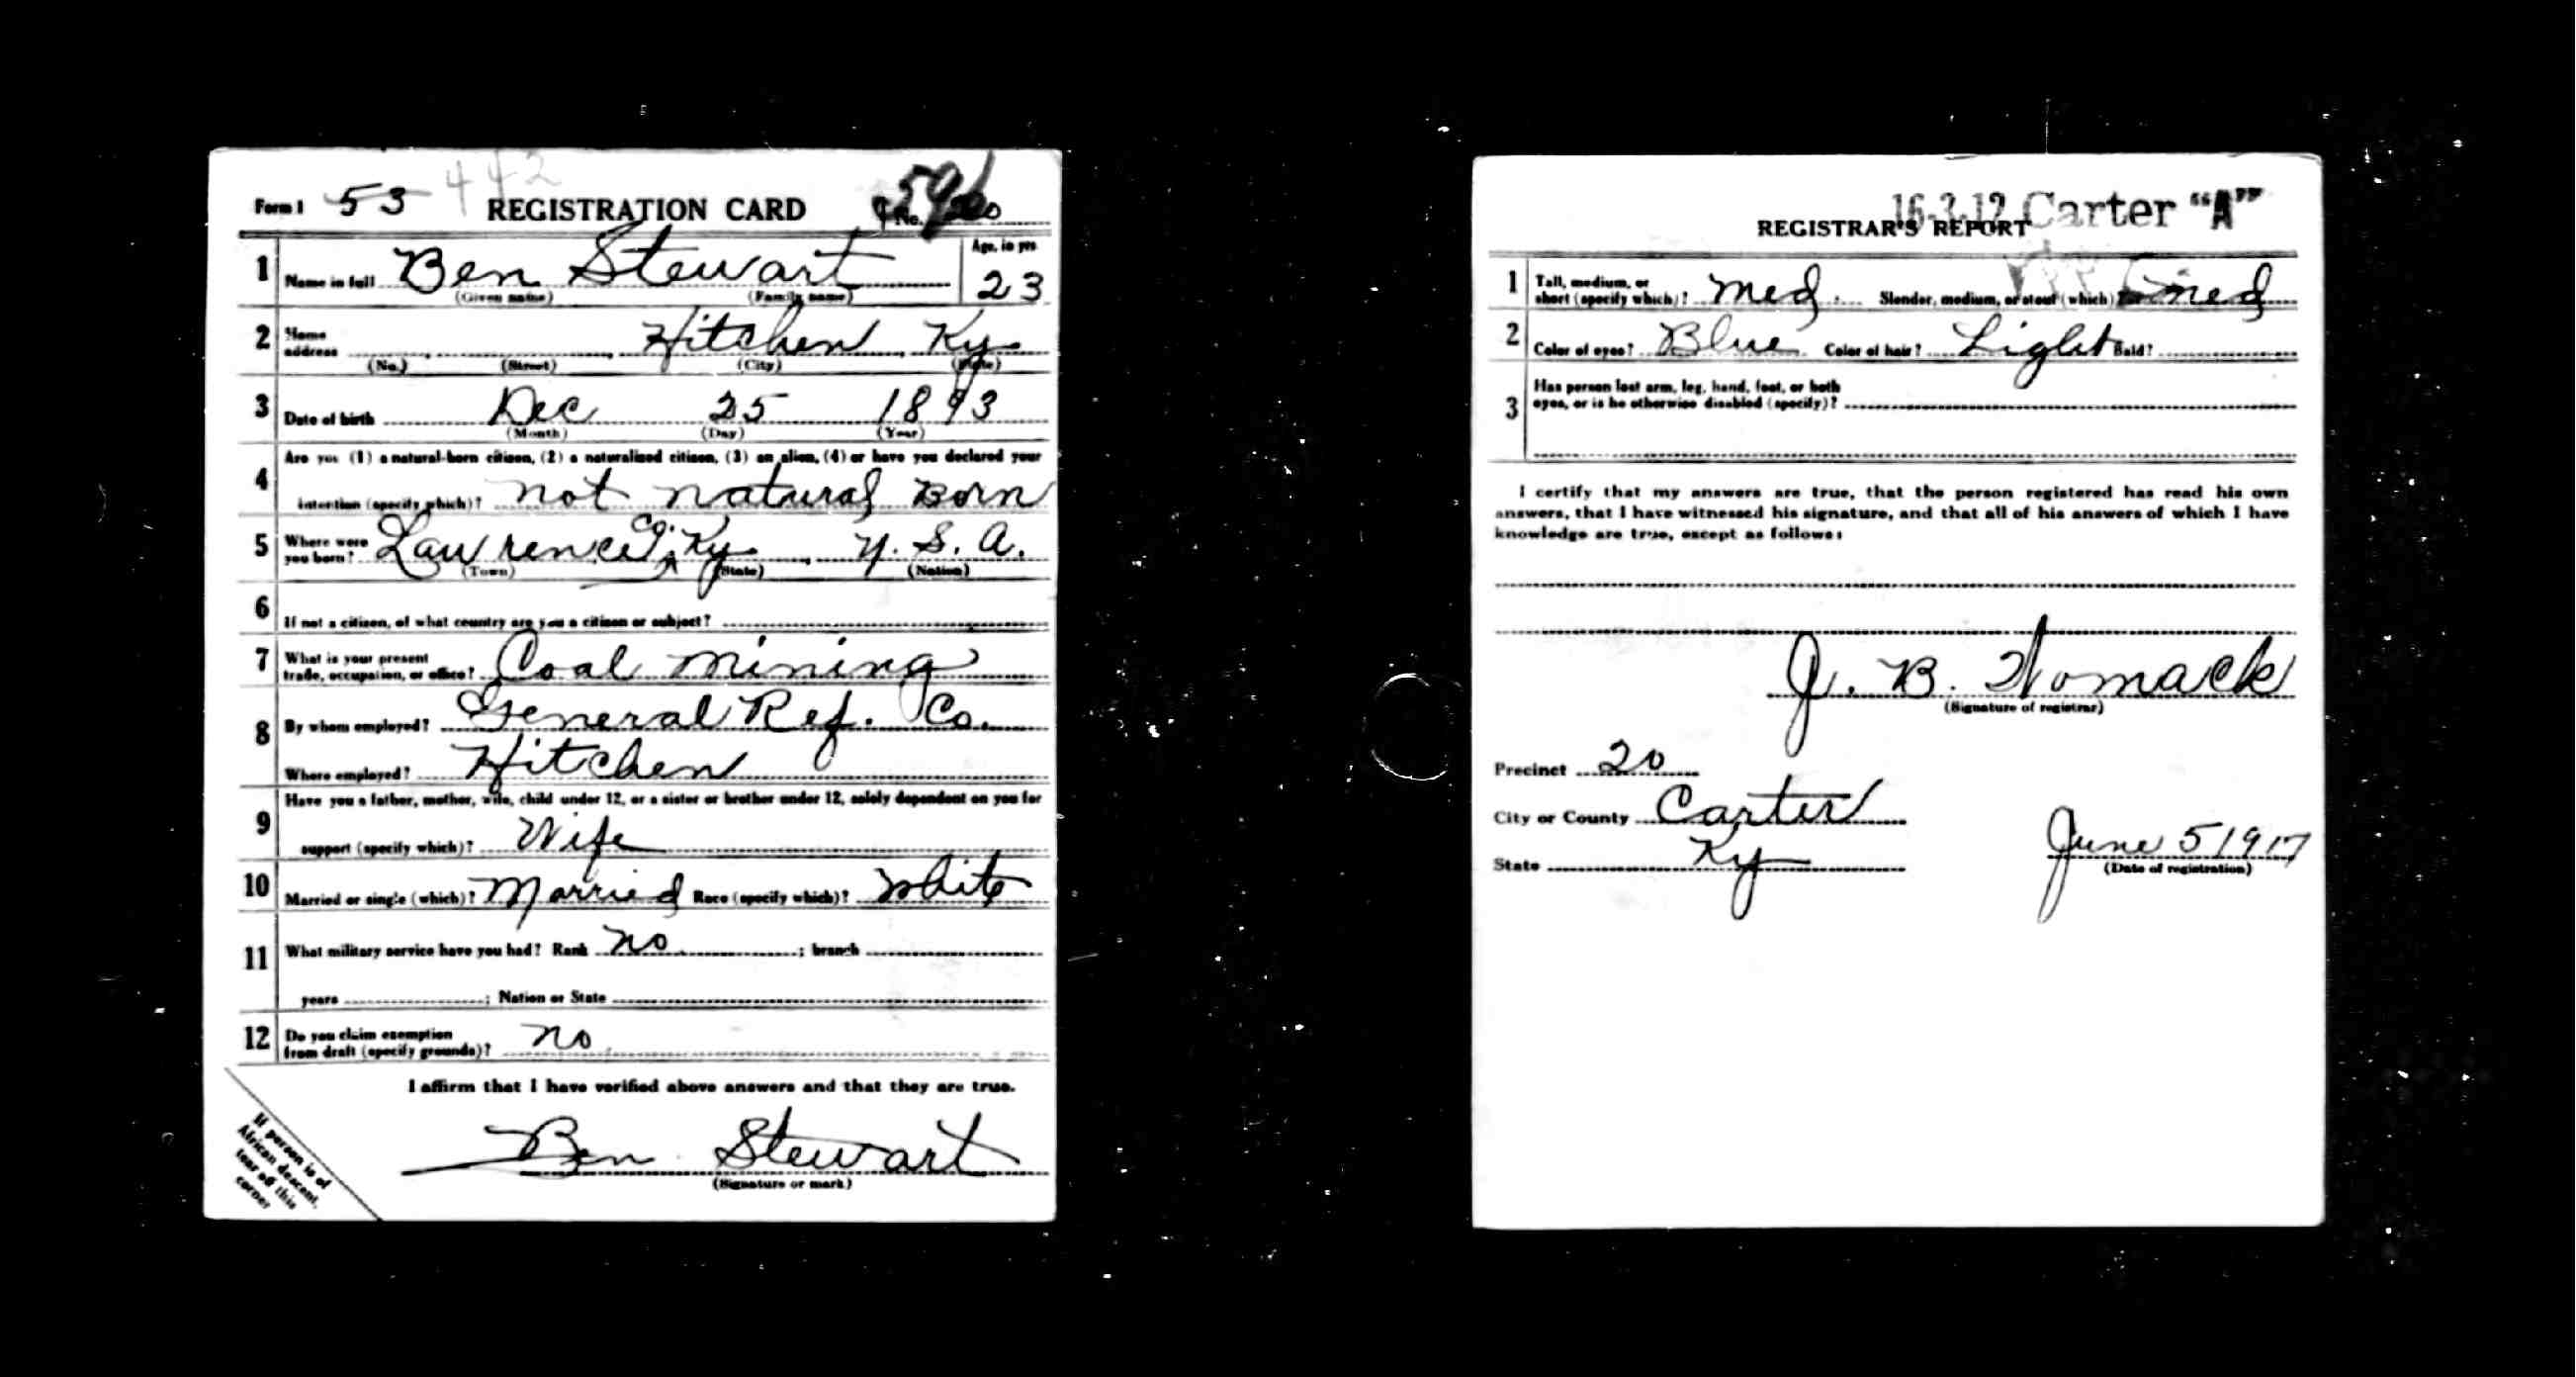 442
Form 1 53 REGISTRATION CARD No.
1 Name in full Ben Stewart Age, in yrs
(Given name) (Family name) 23
2 Home address Hitchen Ky
(No.) (Street) (City) (State)
3 Date of birth Dec 25 1893
(Month) (Day) (Year)
4 Are you (1) a natural-born citizen, (2) a naturalized citizen, (3) an alien, (4) or have you declared your
intention (specify which)? not natural Born
5 Where were you born? Lawrence Co. Ky U. S. A.
(Town) (State) (Nation)
6 If not a citizen, of what country are you a citizen or subject?
7 What is your present
trade, occupation, or office? Coal mining
8 By whom employed? General Ref. Co.
Where employed? Hitchen
9 Have you a father, mother, wife, child under 12, or a sister or brother under 12, solely dependent on you for
support (specify which)? Wife
10 Married or single (which)? Married Race (specify which)? White
11 What military service have you had? Rank no ; branch
years ; Nation or State
12 Do you claim exemption
from draft (specify grounds)? no
I affirm that I have verified above answers and that they are true.
Ben Stewart
(Signature or mark)
If person is of
African descent,
tear off this
corner
16-3-12 Carter "A"
REGISTRAR'S REPORT
1 Tall, medium, or
short (specify which)? med. Slender, medium, or stout (which)? med
2 Color of eyes? Blue Color of hair? Light Bald?
3 Has person lost arm, leg, hand, foot, or both
eyes, or is he otherwise disabled (specify)?
I certify that my answers are true, that the person registered has read his own
answers, that I have witnessed his signature, and that all of his answers of which I have
knowledge are true, except as follows:
J. B. Womack
(Signature of registrar)
Precinct 20
City or County Carter
State Ky
June 5 1917
(Date of registration)